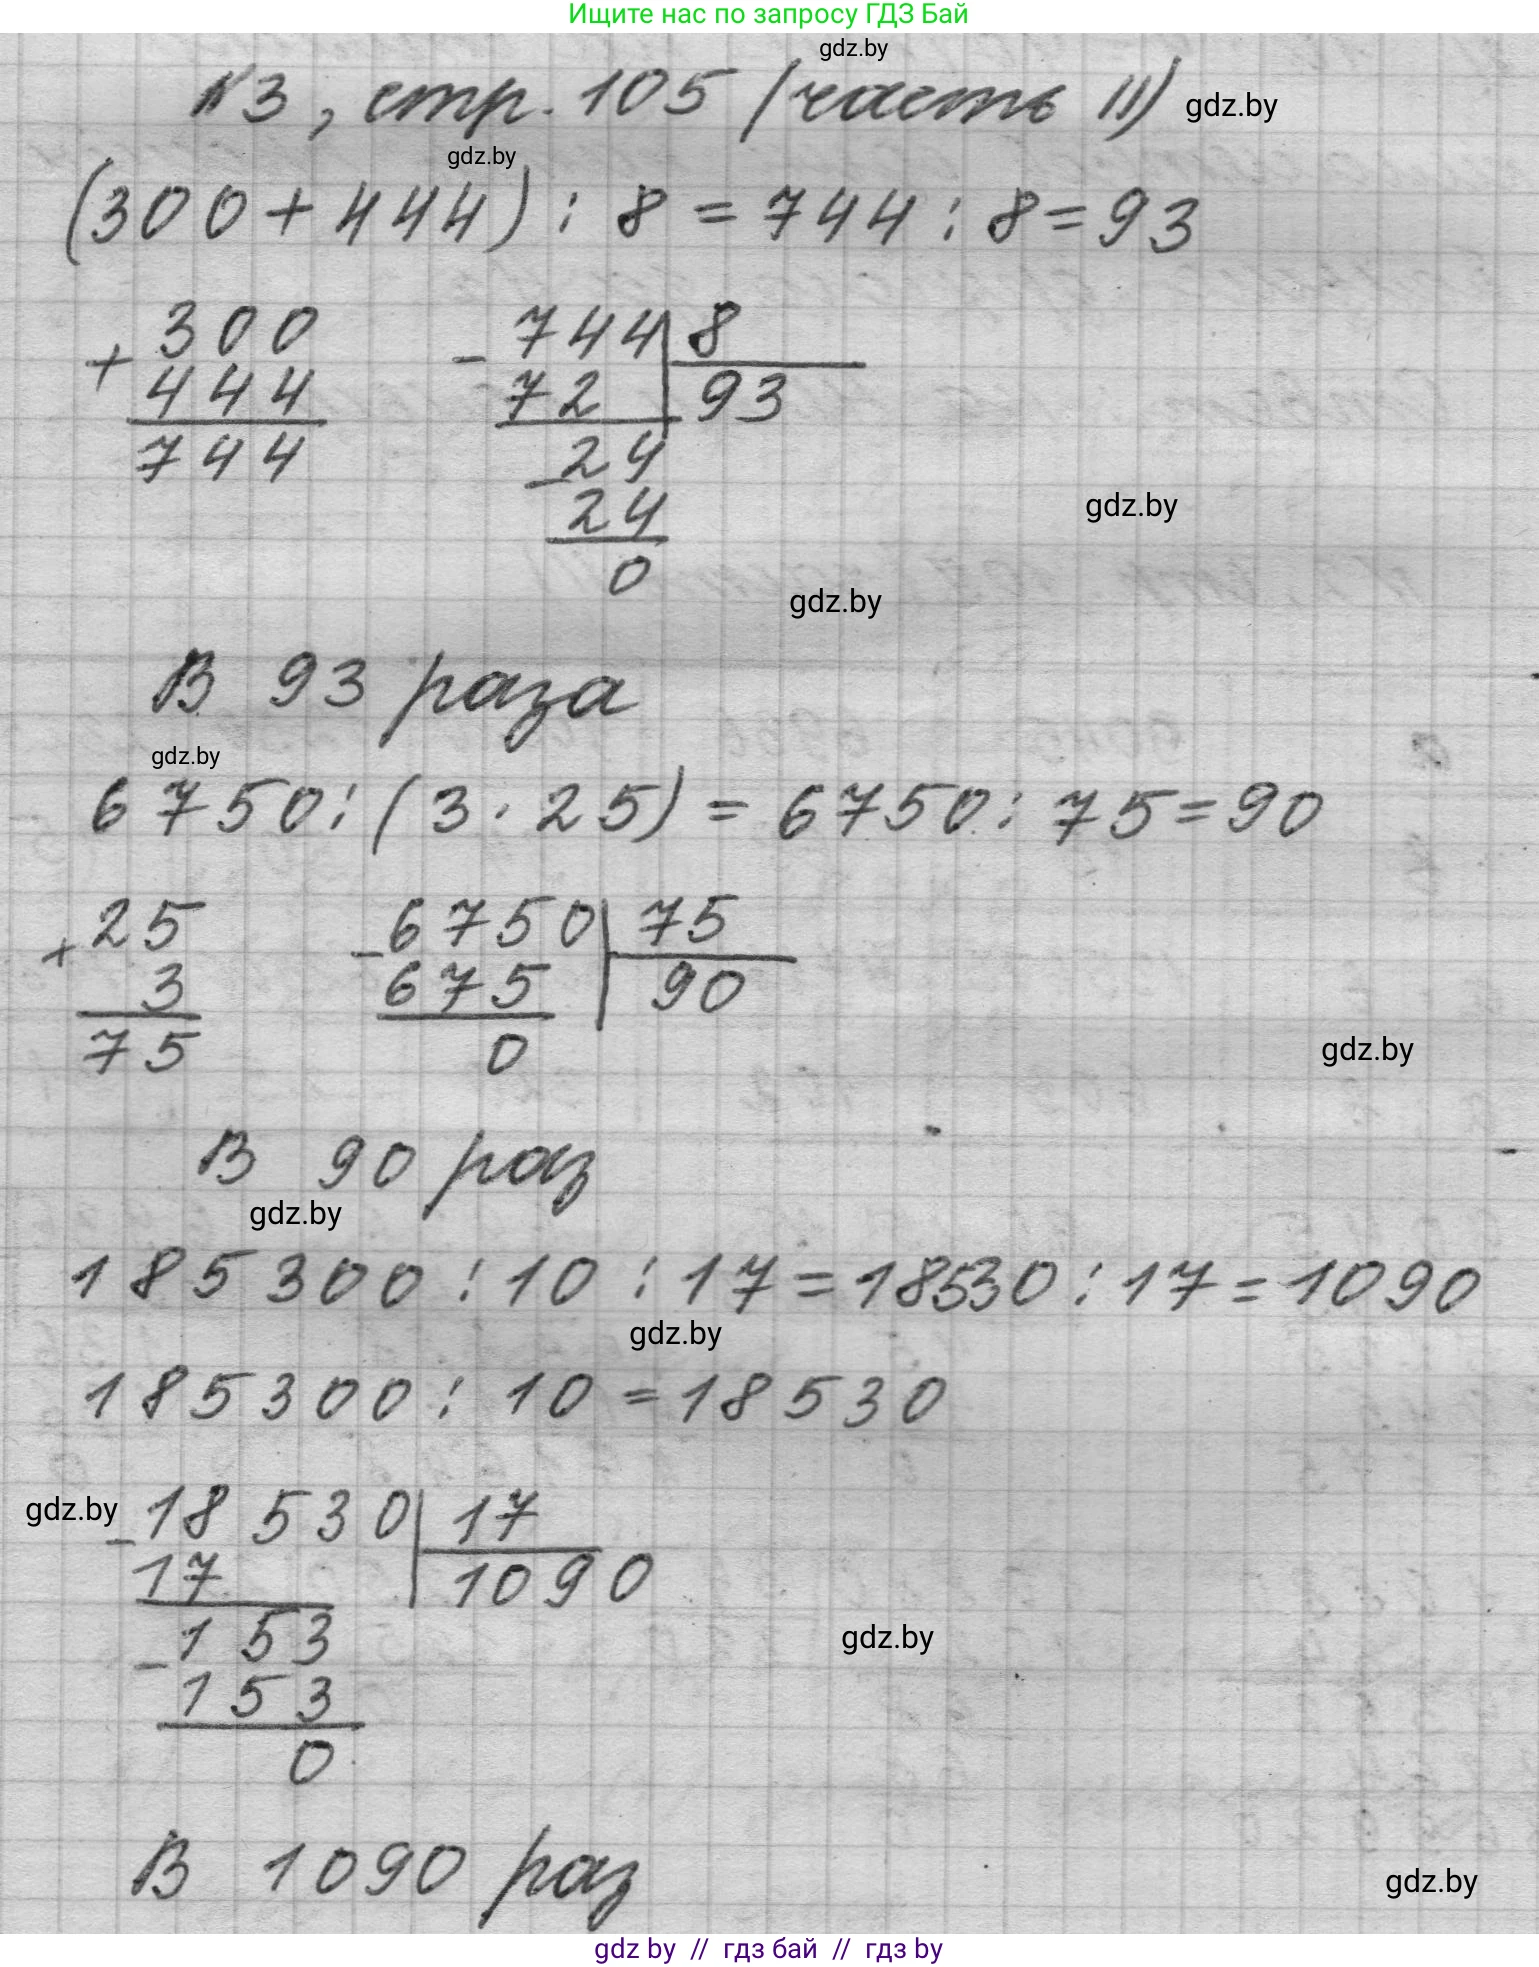 Ищите нас по запросу ГДЗ Бай
gdz.by
№3, стр. 105 (часть II) gdz.by
gdz.by
(300+444) : 8 = 744 : 8 = 93
300 - 744 | 8
+ 444 72 | 93
744 - 24
24
0
gdz.by
gdz.by
В 93 раза
gdz.by
6750 : (3 · 25) = 6750 : 75 = 90
+ 25 - 6750 | 75
3 675 | 90
75 0
gdz.by
В 90 раз
gdz.by
185300 : 10 : 17 = 18530 : 17 = 1090
gdz.by
185300 : 10 = 18530
gdz.by - 18530 | 17
17 | 1090
- 153
gdz.by
153
0
В 1090 раз
gdz.by
gdz by // гдз бай // гдз by